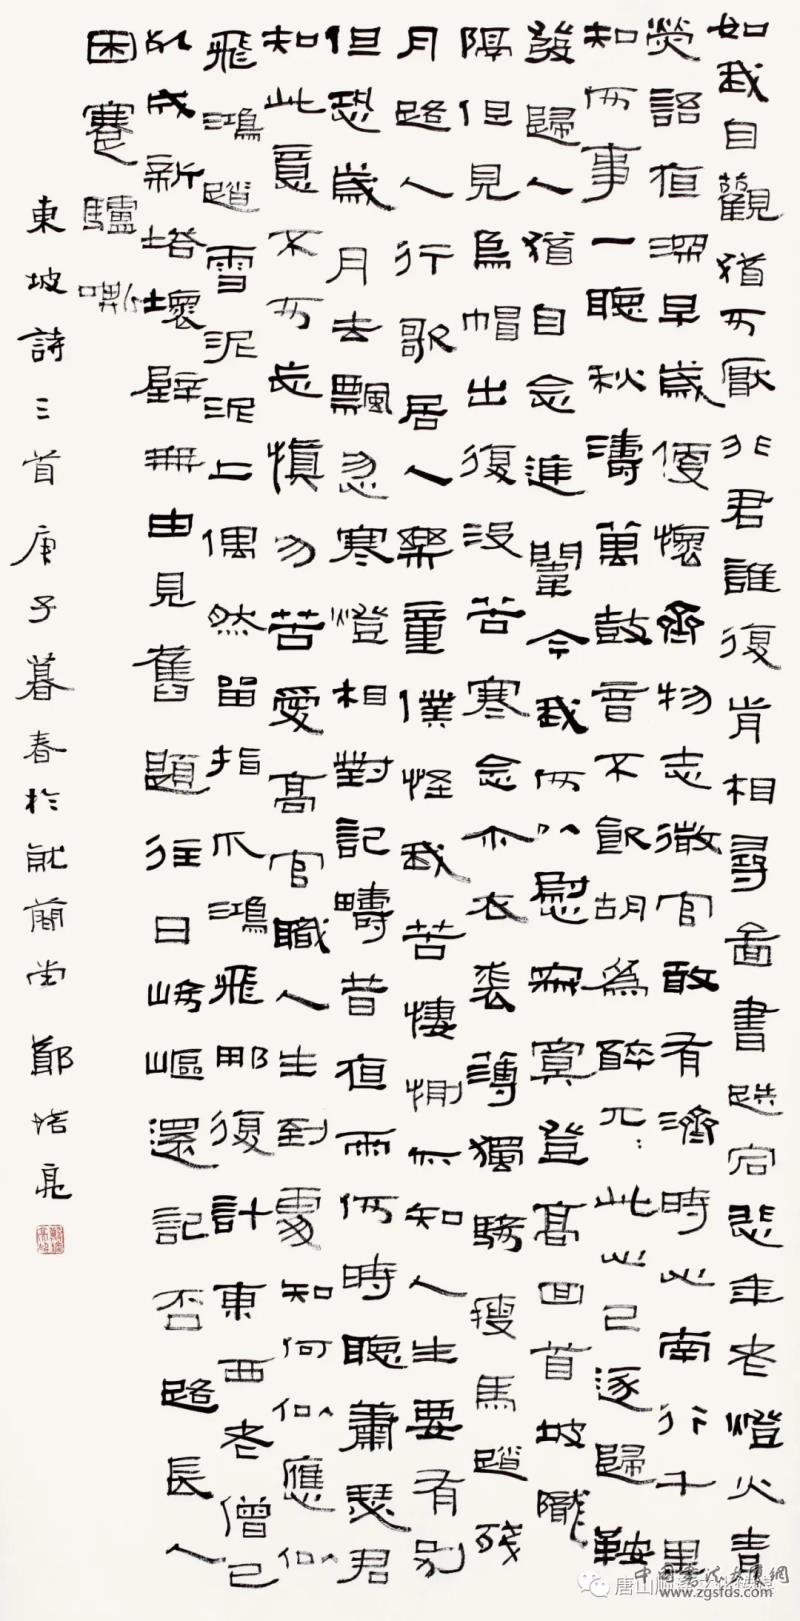 如我自觀猶可厭非君誰復肯相尋圖書跌宕悲年老燈火青
熒語夜深早歲便懷齊物志微官敢有濟時心南行千里
知何事一聽秋濤萬鼓音不飲胡為醉兀兀此心已逐歸鞍
發歸人猶自念庭闈今我何以慰寂寞登高回首坡隴
隔但見烏帽出復沒苦寒念爾衣裘薄獨騎瘦馬踏殘
月路人行歌居人樂童僕怪我苦悽惻亦知人生要有別
但恐歲月去飄忽寒燈相對記疇昔夜雨何時聽蕭瑟君
知此意不可忘慎勿苦愛高官職人生到處知何似應似
飛鴻踏雪泥泥上偶然留指爪鴻飛那復計東西老僧已
死成新塔壞壁無由見舊題往日崎嶇還記否路長人
困蹇驢嘶
東坡詩三首庚子暮春於就簡堂鄭培亮
www.zgsfds.com